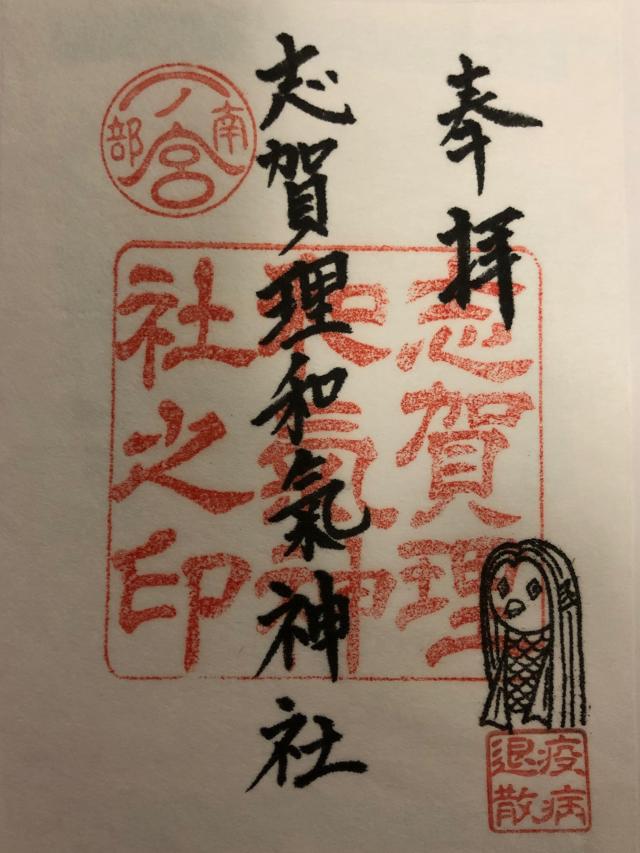 奉拝
志賀理和氣神社
南部
一ノ宮
志賀理
和氣神
社之印
疫病
退散